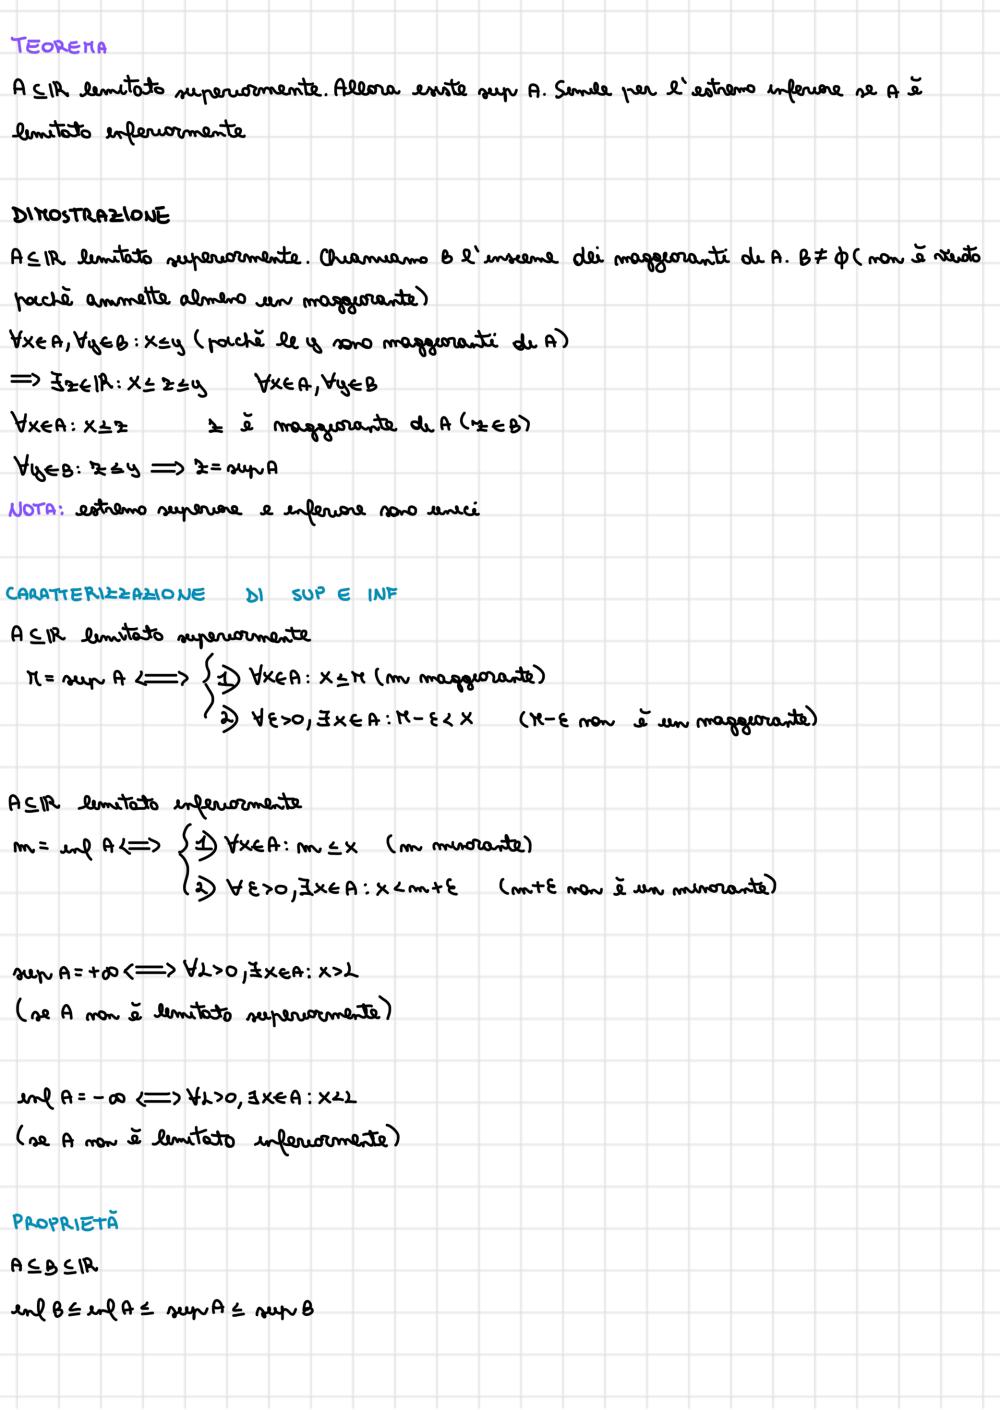 TEOREMA
A ⊆ ℝ limitato superiormente. Allora esiste sup A. Simile per l'estremo inferiore se A è
limitato inferiormente
DIMOSTRAZIONE
A ⊆ ℝ limitato superiormente. Chiamiamo B l'insieme dei maggioranti di A. B ≠ ϕ (non è vuoto
poichè ammette almeno un maggiorante)
∀x∈A, ∀y∈B : x≤y (poichè le y sono maggioranti di A)
⟹ ∃z∈ℝ : x ≤ z ≤ y ∀x∈A, ∀y∈B
∀x∈A : x≤z z è maggiorante di A (z ∈ B)
∀y∈B : z ≤ y ⟹ z = sup A
NOTA: estremo superiore e inferiore sono unici
CARATTERIZZAZIONE DI SUP E INF
A ⊆ ℝ limitato superiormente
M = sup A ⟺ { 1) ∀x∈A : x ≤ M (m maggiorante)
2) ∀ε>0, ∃x∈A : M-ε < x (M-ε non è un maggiorante)
A ⊆ ℝ limitato inferiormente
m = inf A ⟺ { 1) ∀x∈A : m ≤ x (m minorante)
2) ∀ε>0, ∃x∈A : x < m+ε (m+ε non è un minorante)
sup A = +∞ ⟺ ∀L>0, ∃x∈A : x>L
(se A non è limitato superiormente)
inf A = -∞ ⟺ ∀L>0, ∃x∈A : x<L
(se A non è limitato inferiormente)
PROPRIETÀ
A ⊆ B ⊆ ℝ
inf B ≤ inf A ≤ sup A ≤ sup B